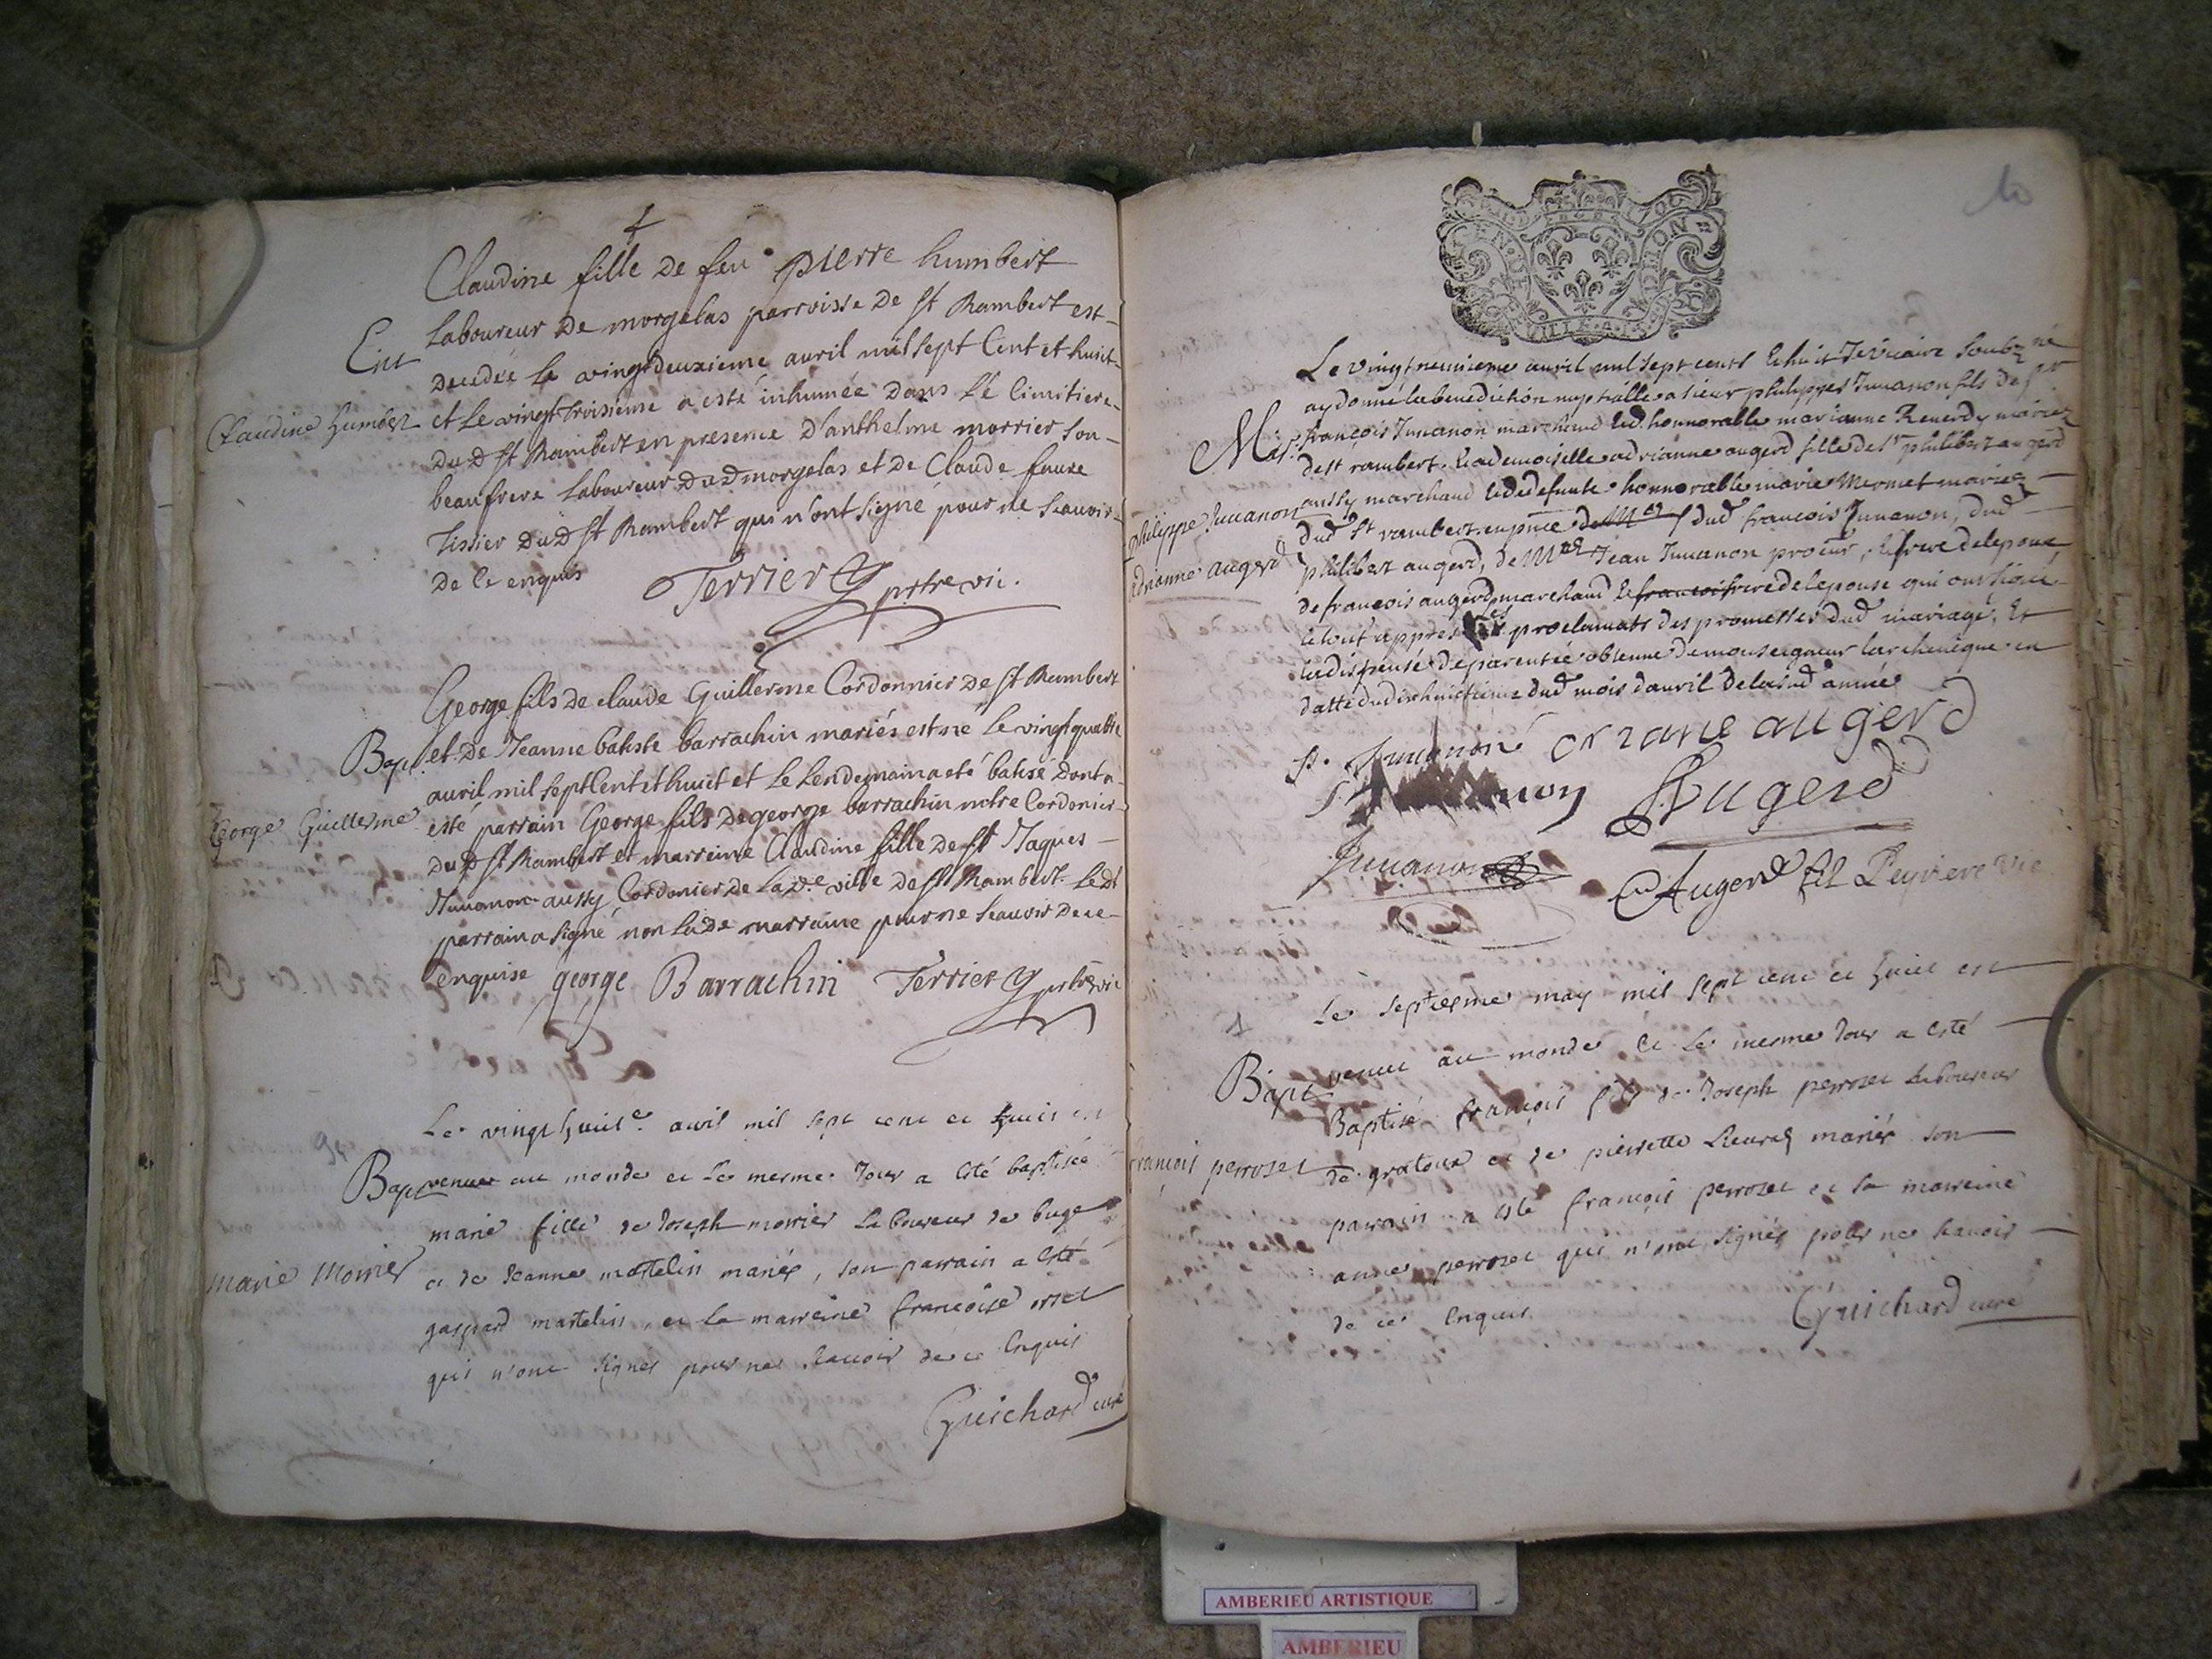 Claudine fille de feu pierre humbert
Ent laboureur de morgelas parroisse de st Rambert est
decedée le vingt deuxieme auril mil sept Cent et huict
Claudine humbert
et le vingt troisieme a esté inhumée dans le cimitiere
dud st Rambert en presence d'anthelme morrier son
beaufrere laboureur dud morgelas et de Claude faure
tissier dud st Rambert qui n'ont signé pour ne scauoir
de ce enquis Terrier prtre vic.
George fils de claude Guillerme Cordonnier de st Rambert
Bapt. et de Jeanne batiste barrachin mariés est né le vingt quattre
auril mil sept Cent et huict et le lendemain a eté batisé dont a
George Guillerme
esté parrain George fils de george barrachin Cordonier
dud st Rambert et marreine Claudine fille de Jaques
Juuanon aussy Cordonier de lad.e ville de st Rambert. Ledt
parrain a signé non lade marraine pour ne scauoir de ce
enquise george Barrachin Terrier prtre vic
Le vingt huict.e auril mil sept cent et huict est
Bapt venue au monde et le mesme Jour a esté baptisée
marie fille de Joseph morrier Laboureur de buge
Marie Morrier
et de Jeanne martelin mariés, son parrain a esté
gaspard martelin, et la marreine francoise orset
qui n'ont signés pour ne scauoir de ce Enquis
Guichard curé
10
Le vingtneuuieme auril mil sept cents et huit Je vicaire soubz.né
ay donné la benediction nuptialle a sieur philippes Juuanon fils de sr
Mar. françois Juuanon marchand et d'honnorable marianne Reuerdy mariez
de st rambert. et a demoiselle adrianne augerd fille de sr philibert augerd
aussy marchand et de defunte honnorable marie Mermet mariez
philippe Juuanon
adrianne augerd
dud st rambert. en pnce de Mre dud francois Juuanon, dud
philibert augerd, de Mre Jean Juuanon procur, et frere de lepoux
de francois augerd marchand et francois frere de lepouse qui ont signé
le tout appres les proclamats des promesses dud mariage, Et
la dispense de parentée obtenue de monseigneur larcheueque en
datte du dixhuictieme dud mois dauril de lasud année
p. Juuanon adriane augerd
Augerd
Juuanon
Augerd fils Peysiere vic
Le septiesme may mil sept cent et huict est
Bapt venu au monde et le mesme Jour a esté
Baptisé françois fils de Joseph perroset Laboureur
françois perroset
de gratoux et de pierrette Lieurey mariés son
parrain a esté françois perroset et la marreine
anne perroset qui n'ont signés pour ne scauoir
de ce Enquis. Guichard curé
AMBERIEU ARTISTIQUE
AMBERIEU